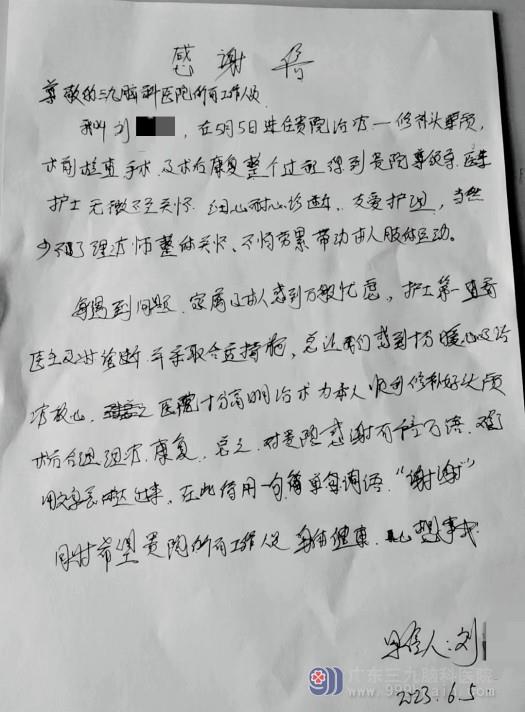 感谢信
尊敬的三九脑科医院所有工作人员
我叫刘，在5月5日进住贵院治疗一修补头骨质，
术前检查手术及术后康复整个过程得到贵院尊领导、医生
护士无微不至关怀、细心耐心诊断、支爱护理，当然
少不了理疗师整体关怀、不怕劳累带动本人肢体运动。
每遇到问题，家属及本人感到万般忧虑，护士第一
医生及时诊断并采取合适措施，总让我们感到十分暖心及治
疗放心。医院十分高明治术为本人顺利修补好头骨质
术后合理理疗、康复。总之，对贵院感谢有千言万语，难
用文字表达出来，在此借用一句简单每词语“谢谢”
同时希望贵院所有工作人员身体健康、心想事成
刘
2023.6.5
广东三九脑科医院